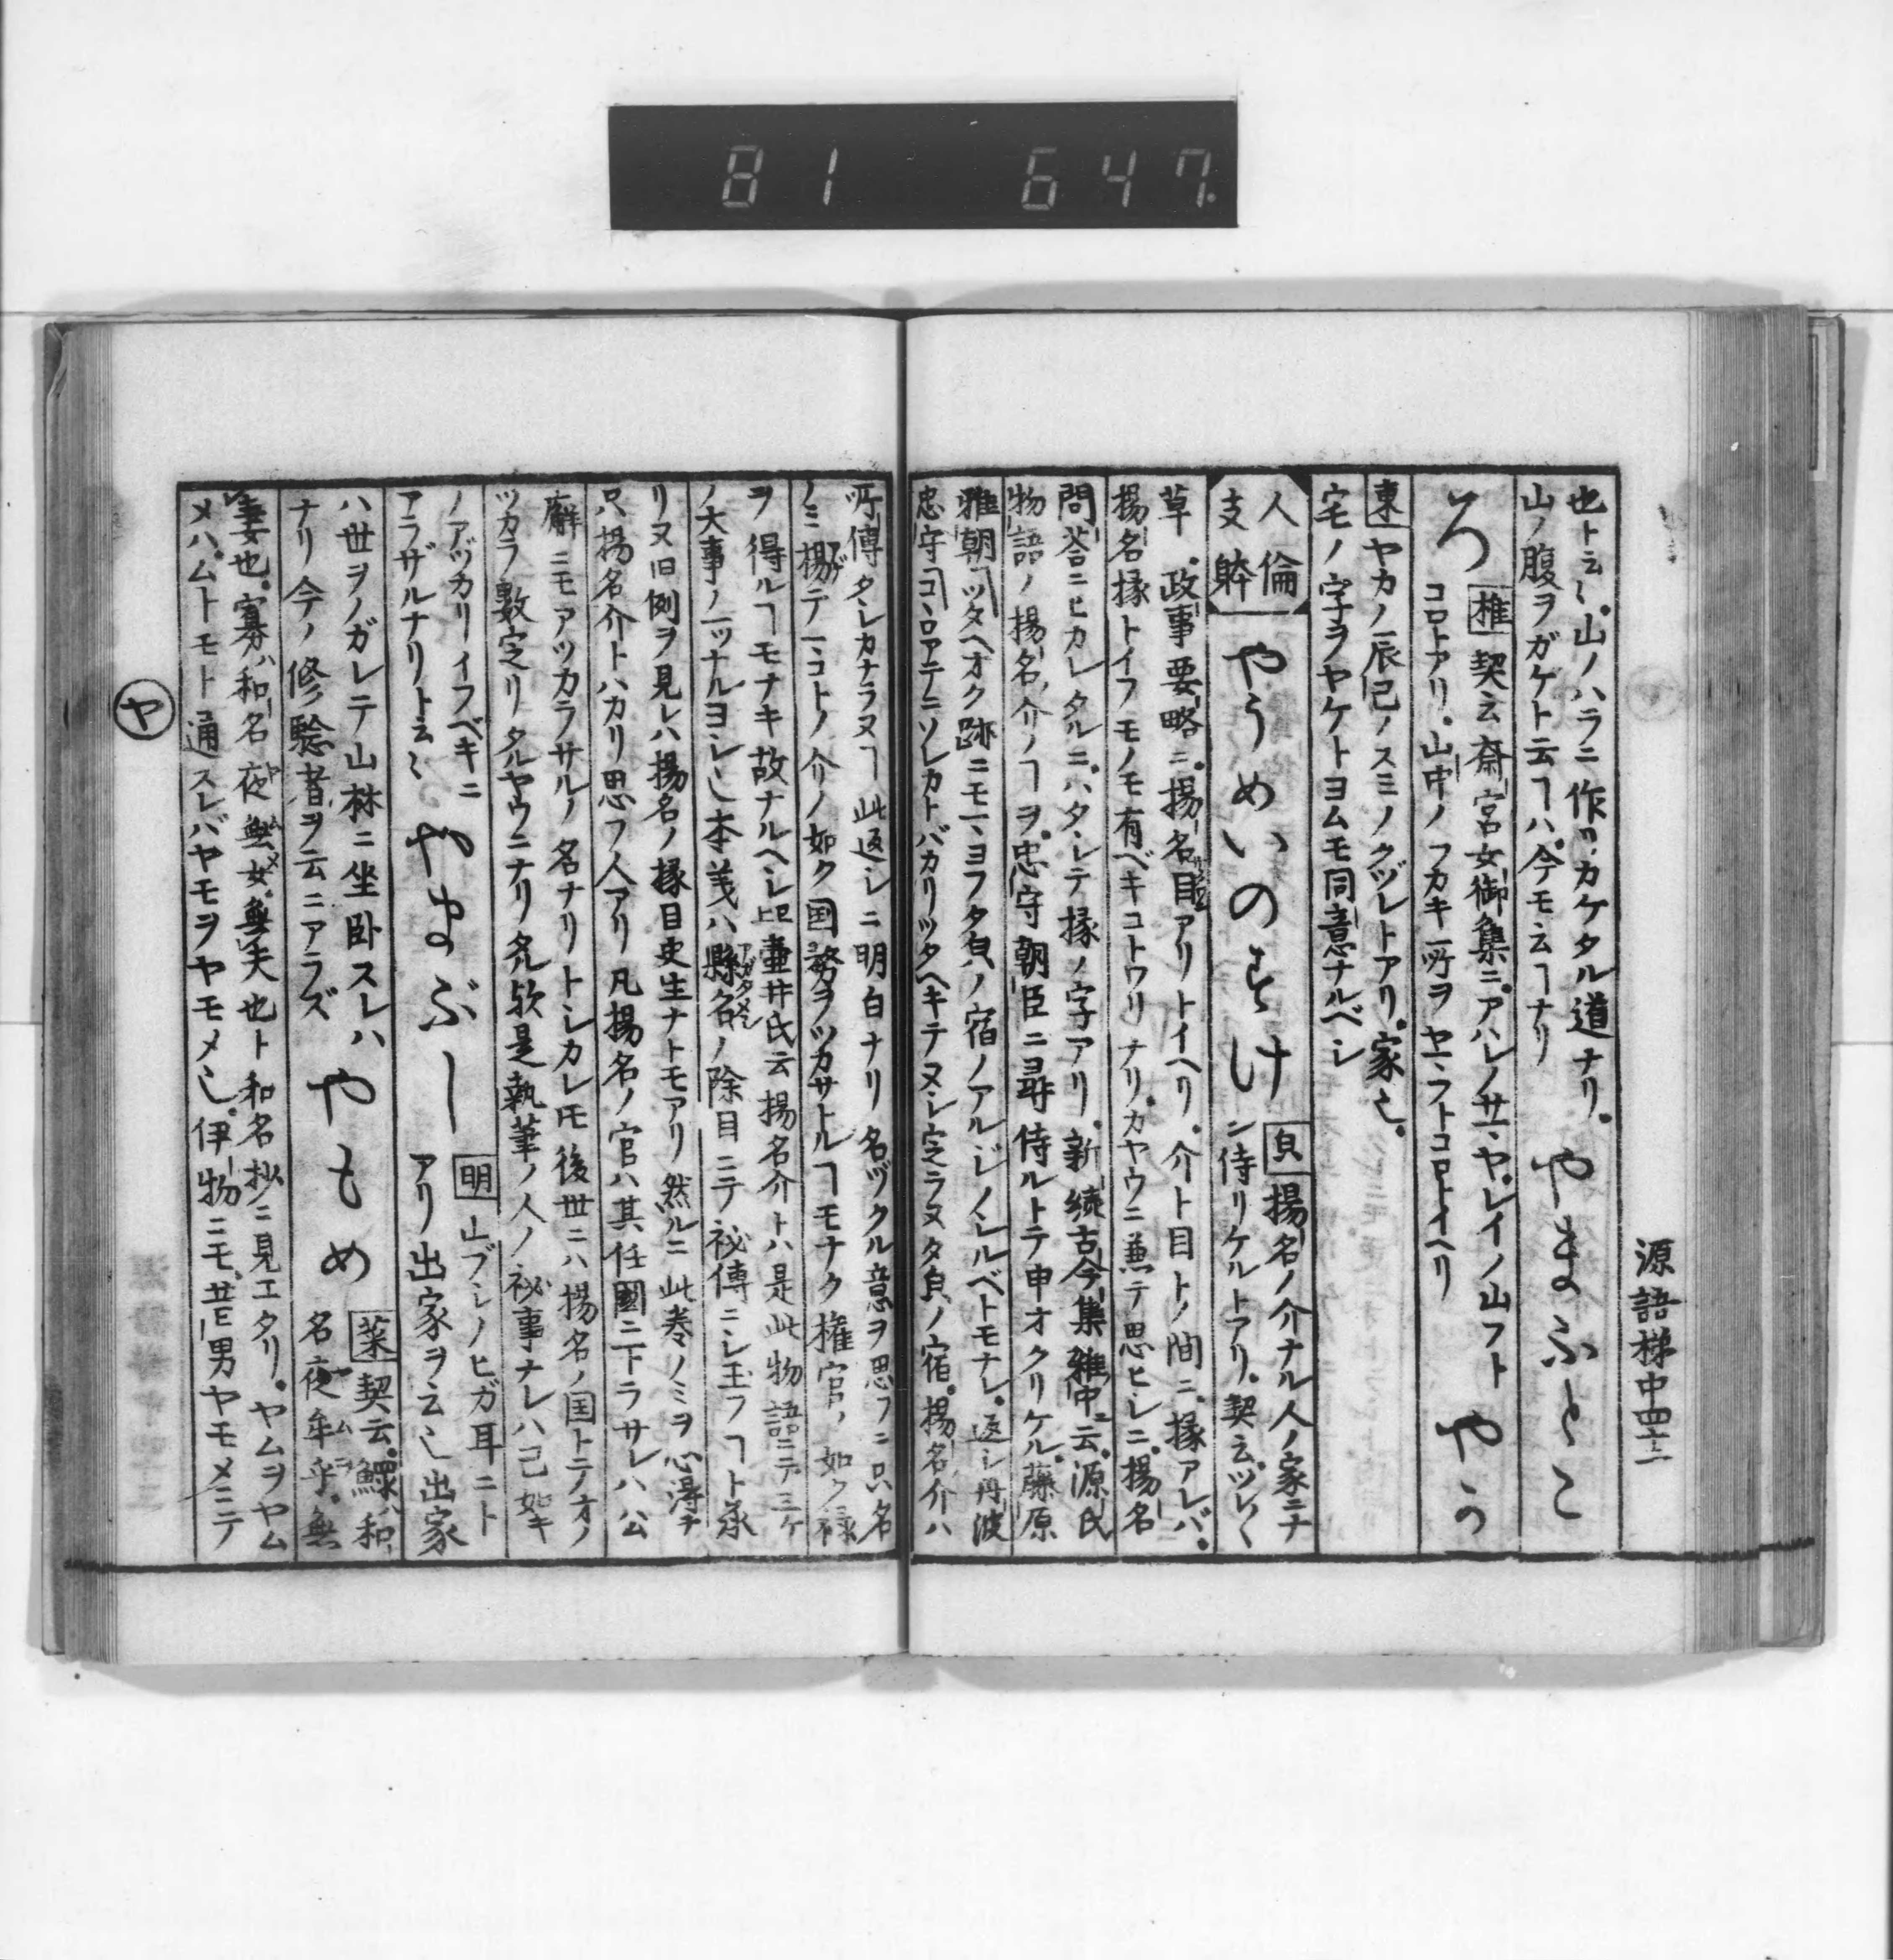 81 647.
源語梯中四十二
也ト云々。山ノハラニ作リカケタル道ナリ。
山ノ腹ヲガケト云ヿハ。今モ云ヿナリ
やまふところ
椎 契云斎宮女御集ニ。アハレノサヤレイノ山フト
コロトアリ。山中ノフカキ所ヲヤマフトコロトイヘリ
やか
東 ヤカノ辰巳ノスミノクヅレトアリ。家也。
宅ノ字ヲヤケトヨムモ同意ナルベシ
人倫
支躰
やうめいのすけ
貞 揚名ノ介ナル人ノ家ニナ
ン侍リケルトアリ。契云ツレ〱
草 政事要略ニ。揚名目アリトイヘリ。介ト目トノ間ニ。掾アレバ。
揚名掾トイフモノモ有ベキコトワリナリ。カヤウニ兼テ思ヒシニ。揚名
問答ニヒカレタルニ。ハタシテ掾ノ字アリ。新続古今集雑中ニ云。源氏
物語ノ揚名ノ介ノヿヲ。忠守朝臣ニ尋侍ルトテ申オクリケル。藤原
雅朝 ツタヘオク跡ニモマヨフ夕㒵ノ宿ノアルジノシルベトモナレ。返シ丹波
忠守 コヽロアテニソレカトバカリツタヘキテヌシ定ラヌ夕㒵ノ宿。揚名ノ介ハ
所傳タシカナラヌヿ此返シニ明白ナリ名ヅクル意ヲ思フニ只名
ノミ揚テマコトノ介ノ如ク国務ヲツカサトルヿモナク権官ノ如ク禄
ヲ得ルヿモナキ故ナルヘシ 壷井氏云揚名介トハ是此物語ニテ三ケ
ノ大事ノ一ツナルヨシ也本義ハ縣名ノ除目ニテ秘傳ニシ玉フヿト承
リ又旧例ヲ見レハ揚名ノ掾目史生ナトモアリ然ルニ此巻ノミヲ心得テ
只揚名介トハカリ思フ人アリ凡揚名ノ官ハ其任國ニ下ラサレハ公
廨ニモアツカラサルノ名ナリトシカレ𪜈後世ニハ揚名ノ国トテオノ
ツカラ数定リタルヤウニナリ久敷是執筆ノ人ノ秘事ナレハ己如キ
ノアヅカリイフベキニ
アラザルナリト云々
やまぶし
明 山ブシノヒガ耳ニト
アリ出家ヲ云也出家
ハ世ヲノガレテ山林ニ坐卧スレハ
ナリ今ノ修驗者ヲ云ニアラズ
やもめ
薬 契云。鰥ハ和
名夜牟乎。無
妻也。寡ハ和名夜無女。無夫也ト和名抄ニ見エタリ。ヤムヲヤム
メハ。ムトモト通スレバヤモヲヤモメ也。伊物ニモ。昔男ヤモメニテ
ヤ